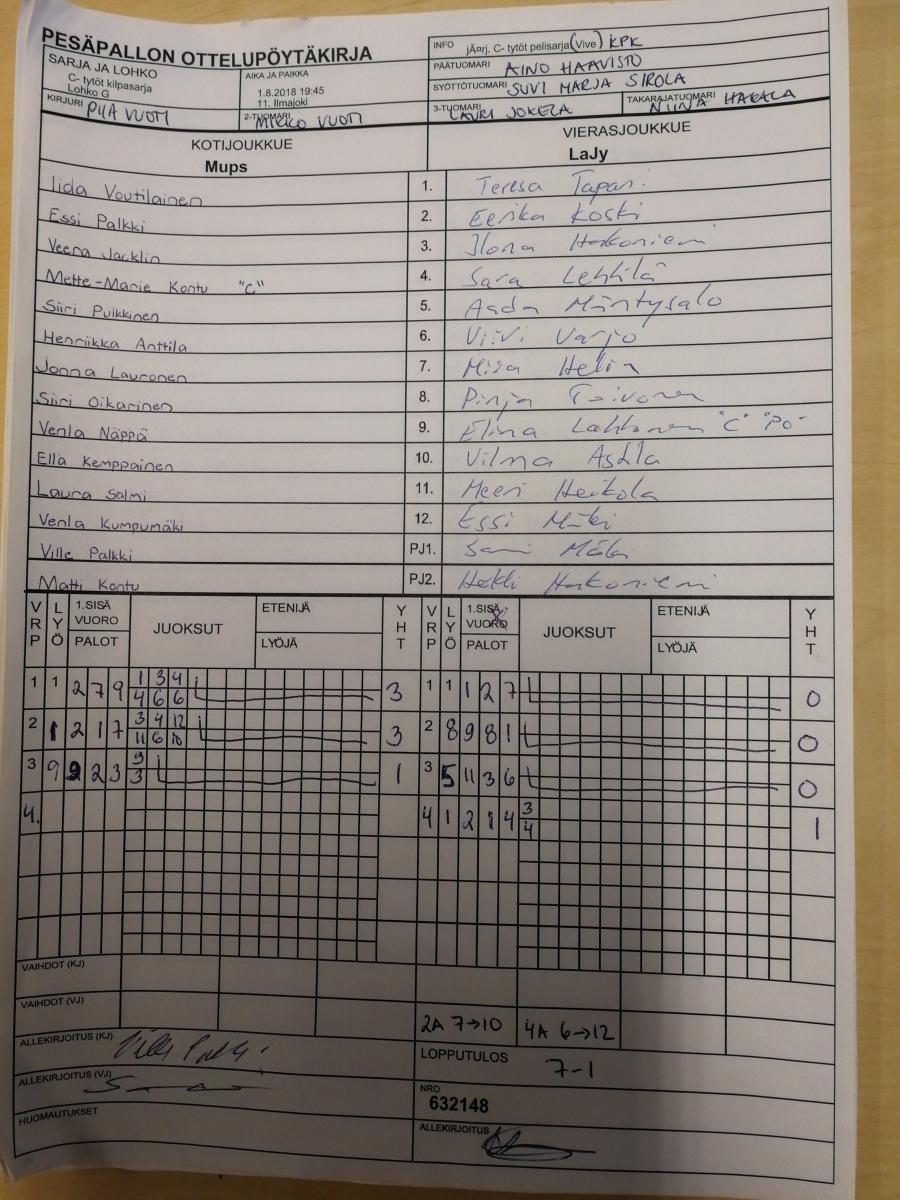 PESÄPALLON OTTELUPÖYTÄKIRJA
SARJA JA LOHKO
C- tytöt kilpasarja
Lohko G
AIKA JA PAIKKA
1.8.2018 19:45
11. Ilmajoki
KIRJURI PIIA VUOTI
2-TUOMARI MIKKO VUOTI
INFO jÄ¤rj. C- tytöt pelisarja (Vive) KPK
PÄÄTUOMARI AINO HAAVISTO
SYÖTTÖTUOMARI SUVI MARJA SIROLA
3-TUOMARI LAURI JOKELA
TAKARAJATUOMARI NIINA HAKALA
KOTIJOUKKUE
Mups
VIERASJOUKKUE
LaJy
Iida Voutilainen 1. Teresa Tapani
Essi Palkki 2. Eerika Koski
Veera Jacklin 3. Ilona Hakoniemi
Mette-Marie Kontu "C" 4. Sara Lehtilä
Siiri Pulkkinen 5. Aada Mäntysalo
Henriikka Anttila 6. Viivi Varjo
Jonna Lauronen 7. Miisa Helin
Siiri Oikarinen 8. Pinja Toivonen
Venla Näppä 9. Elina Lahtonen "C" "Po"
Ella Kemppainen 10. Vilma
Laura Salmi 11. Meeri Heikola
Venla Kumpumäki 12. Essi Mäki
Ville Palkki PJ1. Sami Mäki
Matti Kontu PJ2. Heikki Hakoniemi
VRP LYÖ 1.SISÄ VUORO PALOT JUOKSUT ETENIJÄ LYÖJÄ YHT VRP LYÖ 1.SISÄ VUORO PALOT JUOKSUT ETENIJÄ LYÖJÄ YHT
1 1 2 7 9 1 3 4 3 1 1 1 2 7 0
4 6 6
2 1 2 1 7 3 4 12 3 2 8 9 8 1 0
11 6 10
3 9 9 2 3 9 1 3 5 11 3 6 0
3
4. 4 1 2 1 4 3 1
4
VAIHDOT (KJ)
VAIHDOT (VJ)
2A 7→10 4A 6→12
ALLEKIRJOITUS (KJ) Ville Palkki
LOPPUTULOS 7-1
ALLEKIRJOITUS (VJ)
NRO
632148
HUOMAUTUKSET
ALLEKIRJOITUS